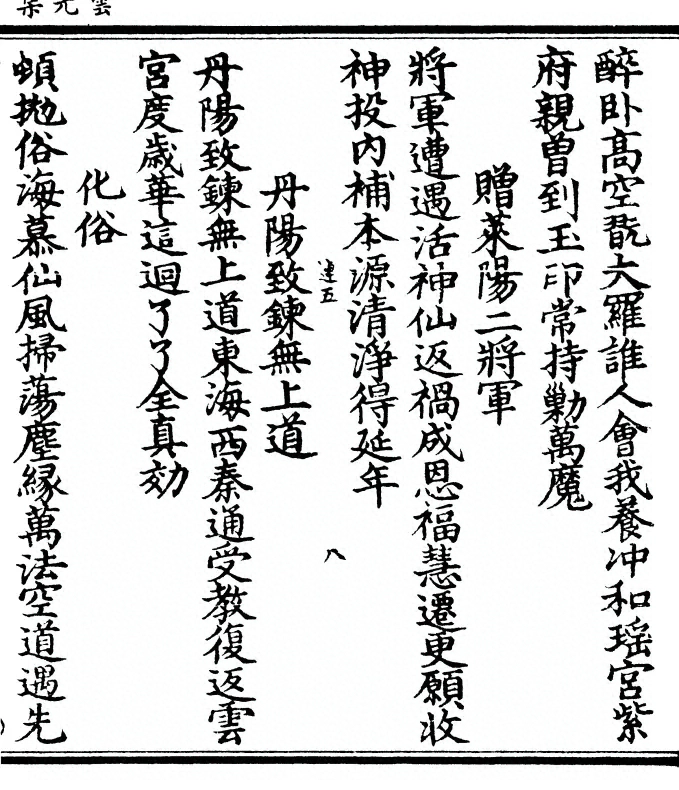 雲光集
醉卧高空翫大羅誰人會我養冲和瑶宮紫
府親曾到玉印常持勦萬魔
贈萊陽二將軍
將軍遭遇活神仙返禍成恩福慧遷更願收
神投内補本源清淨得延年
連五
八
丹陽致鍊無上道
丹陽致鍊無上道東海西秦通受教復返雲
宮度歲華這迴了了全真効
化俗
頓抛俗海慕仙風掃蕩塵縁萬法空道遇先